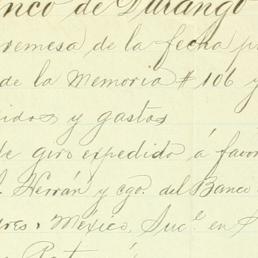 nco de Durango
remesa de la fecha p
de la Memoria # 106 y
idos y gastos
de giro expedido á favor
Herrán y cgo. del Banco
res. México, Suc.l en